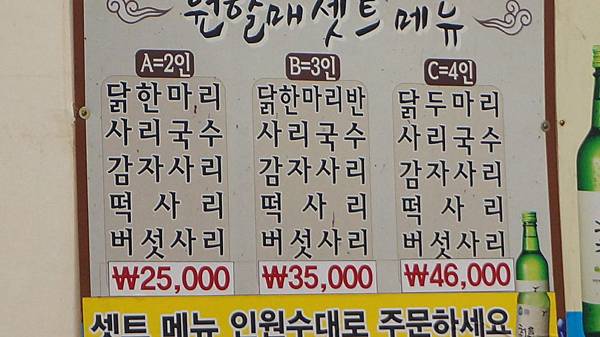 원할매 셋트 메뉴
A=2인 B=3인 C=4인
닭한마리 닭한마리반 닭두마리
사리국수 사리국수 사리국수
감자사리 감자사리 감자사리
떡사리 떡사리 떡사리
버섯사리 버섯사리 버섯사리
₩25,000 ₩35,000 ₩46,000
셋트 메뉴 인원수대로 주문하세요